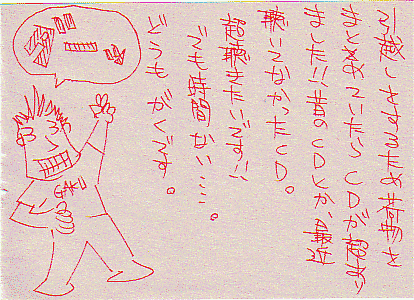 引越しするため荷物を
まとめていたらCDが超あり
ました!!昔のCDとか、最近
聴いてなかったCD。
超聴きたいです!!
でも時間ない…。
どうも がくです。
GAKU